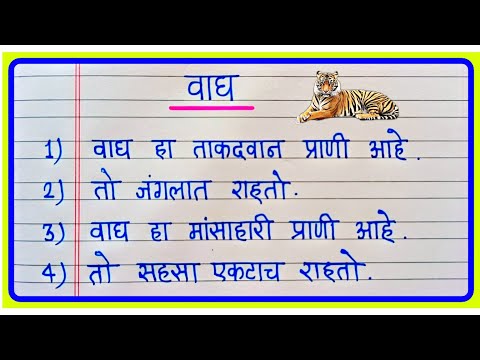 वाघ
1) वाघ हा ताकदवान प्राणी आहे.
2) तो जंगलात राहतो.
3) वाघ हा मांसाहारी प्राणी आहे.
4) तो सहसा एकटाच राहतो.